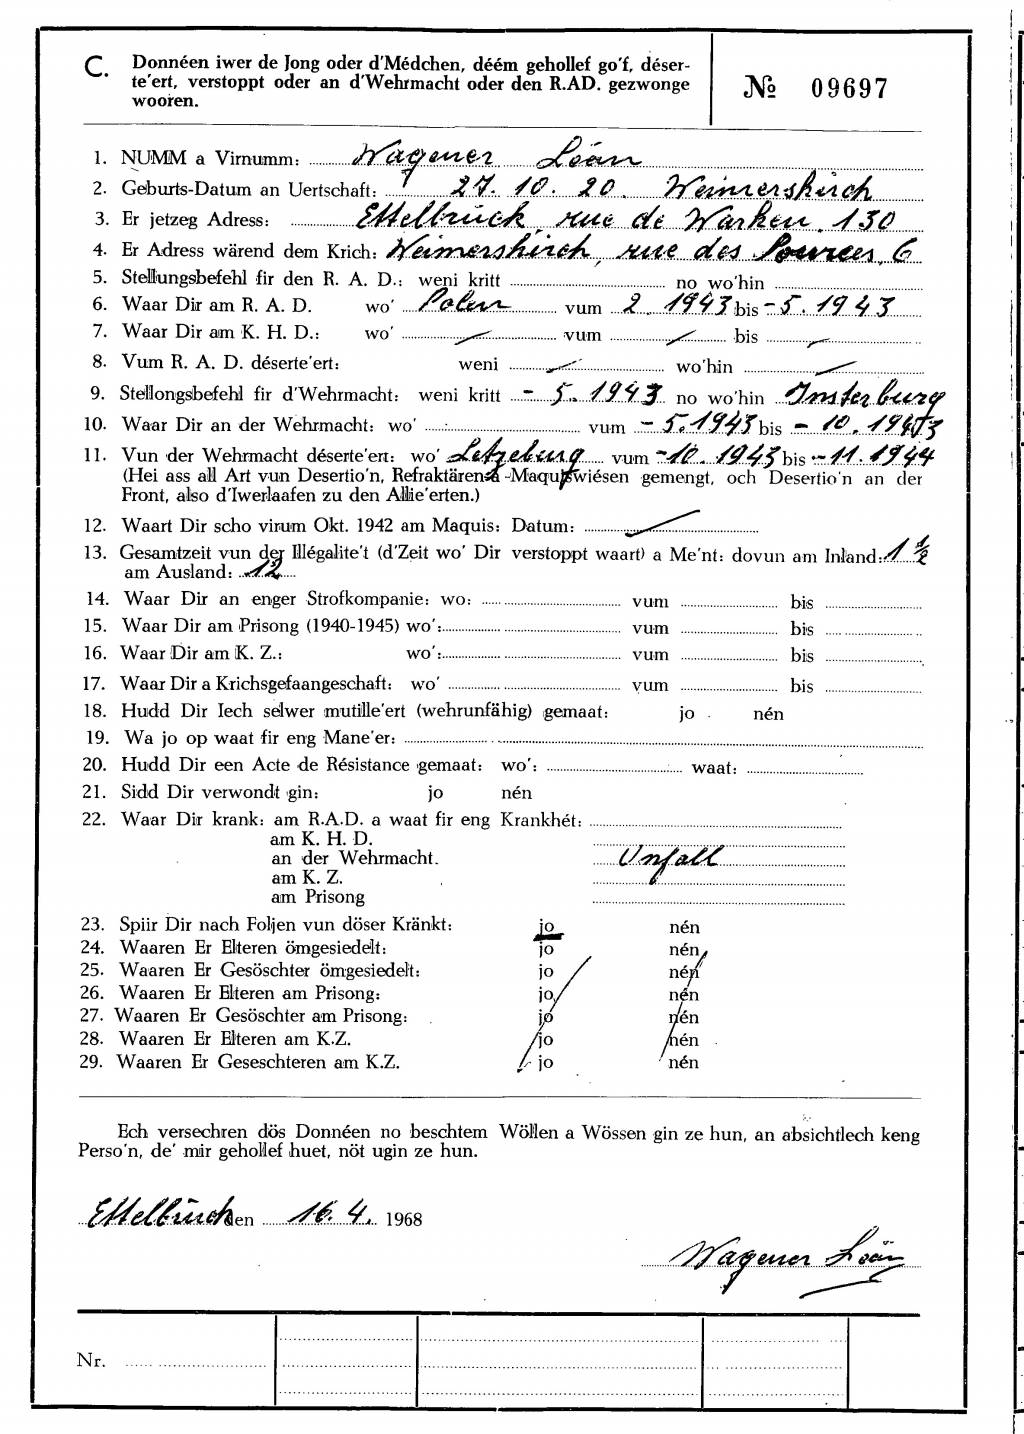 C. Donnéen iwer de Jong oder d'Médchen, déém gehollef go'f, déser-
te'ert, verstoppt oder an d'Wehrmacht oder den R.AD. gezwonge
wooren.
№ 09697
1. NUMM a Virnumm: Wagener Léon
2. Geburts-Datum an Uertschaft: 27. 10. 20. Weimerskirch
3. Er jetzeg Adress: Ettelbrück, rue de Warken, 130
4. Er Adress wärend dem Krich: Weimerskirch, rue des Sources, 6
5. Stellungsbefehl fir den R. A. D.: weni kritt no wo'hin
6. Waar Dir am R. A. D. wo' Polen vum 2. 1943 bis -5. 1943
7. Waar Dir am K. H. D.: wo' / vum / bis /
8. Vum R. A. D. déserte'ert: weni / wo'hin /
9. Stellongsbefehl fir d'Wehrmacht: weni kritt - 5. 1943 no wo'hin Insterburg
10. Waar Dir an der Wehrmacht: wo' vum - 5. 1943 bis - 10. 1943
11. Vun der Wehrmacht déserte'ert: wo' Letzeburg vum -10. 1943 bis -11. 1944
(Hei ass all Art vun Desertio'n, Refraktären -Maquiswiésen gemengt, och Desertio'n an der
Front, also d'Iwerlaafen zu den Allie'erten.)
12. Waart Dir scho virum Okt. 1942 am Maquis: Datum: /
13. Gesamtzeit vun der Illégalite't (d'Zeit wo' Dir verstoppt waart) a Me'nt: dovun am Inland: 1 ½
am Ausland: 12
14. Waar Dir an enger Strofkompanie: wo: vum bis
15. Waar Dir am Prisong (1940-1945) wo': vum bis
16. Waar Dir am K. Z.: wo': vum bis
17. Waar Dir a Krichsgefaangeschaft: wo' vum bis
18. Hudd Dir Iech selwer mutille'ert (wehrunfähig) gemaat: jo nén
19. Wa jo op waat fir eng Mane'er:
20. Hudd Dir een Acte de Résistance gemaat: wo': waat:
21. Sidd Dir verwondt gin: jo nén
22. Waar Dir krank: am R.A.D. a waat fir eng Krankhét:
am K. H. D.
an der Wehrmacht. Unfall
am K. Z.
am Prisong
23. Spiir Dir nach Foljen vun döser Kränkt: jo nén
24. Waaren Er Elteren ömgesiedelt: jo nén
25. Waaren Er Gesöschter ömgesiedelt: jo nén
26. Waaren Er Elteren am Prisong: jo nén
27. Waaren Er Gesöschter am Prisong: jo nén
28. Waaren Er Elteren am K.Z. jo nén
29. Waaren Er Geseschteren am K.Z. jo nén
Ech versechren dös Donnéen no beschtem Wöllen a Wössen gin ze hun, an absichtlech keng
Perso'n, de' mir gehollef huet, nöt ugin ze hun.
Ettelbrück den 16. 4. 1968
Wagener Léon
Nr.